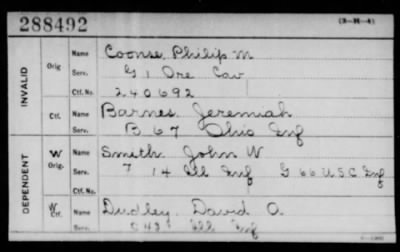 288492 (3-M-4)
INVALID
Orig Name Coonse, Philip M
Serv. G 1 Ore Cav
Ctf. No. 240692
Ctf. Name Barnes, Jeremiah
Serv. B 67 Ohio Inf
DEPENDENT
W Orig. Name Smith John W
Serv. 14 Ill Inf G 66 U S C Inf
Ctf. No.
W Ctf. Name Dudley, David O.
Serv. Ill Inf